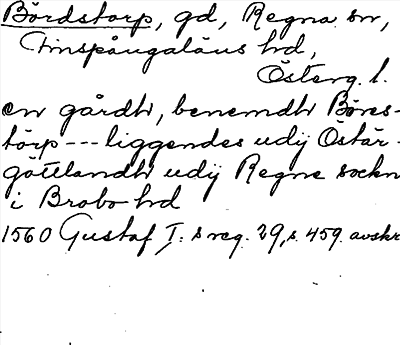 Bördstorp, gd, Regna sn,
Finspångaläns hd,
Österg. l.
en gårdh, benemdh Börs-
törp --- liggendes udij Östär-
göttlandh udij Regne sockn
i Brobo hd
1560 Gustaf I:s reg. 29, s. 459. avskr